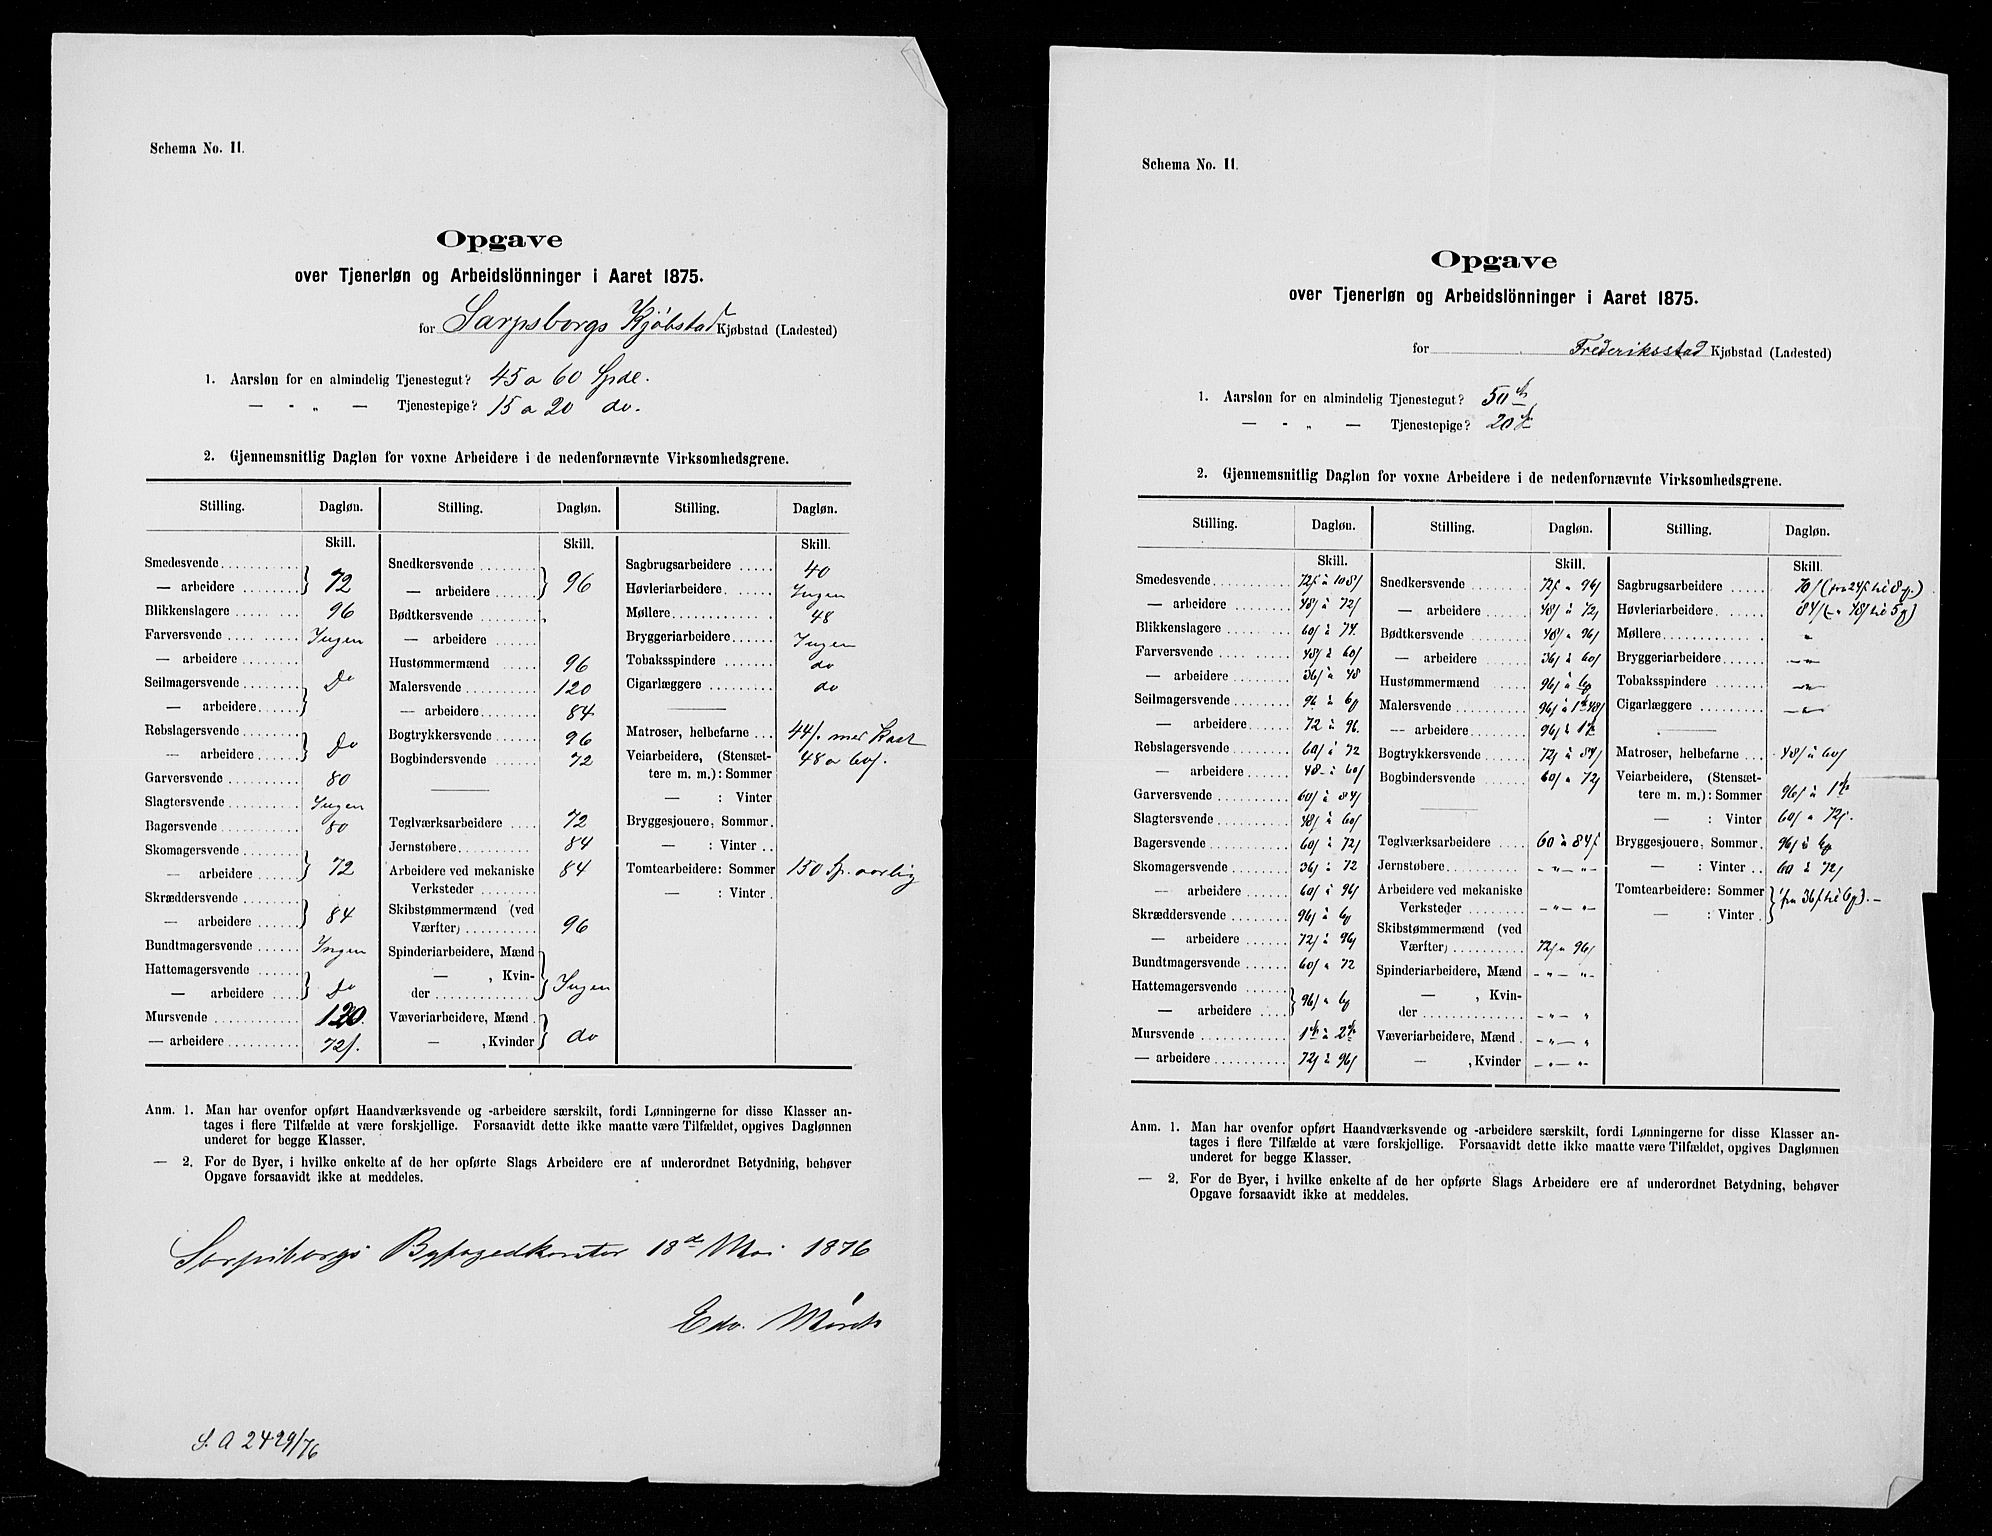 Schema No. 11.
Opgave
over Tjenerløn og Arbeidslönninger i Aaret 1875.
for Sarpsborgs Kjøbstad Kjøbstad (Ladested)
1. Aarsløn for en almindelig Tjenestegut? 45 a 60 Spdl.
— " „ — Tjenestepige? 15 a 20 do.
2. Gjennemsnitlig Dagløn for voxne Arbeidere i de nedenfornævnte Virksomhedsgrene.
Stilling. Dagløn. Stilling. Dagløn. Stilling. Dagløn.
Skill. Skill. Skill.
Smedesvende Snedkersvende Sagbrugsarbeidere 40
— arbeidere } 72 — arbeidere } 96 Høvleriarbeidere Ingen
Blikkenslagere 96 Bødtkersvende Møllere 48
Farversvende Ingen — arbeidere Bryggeriarbeidere Ingen
— arbeidere Hustømmermænd 96 Tobaksspindere do
Seilmagersvende } Do Malersvende 120 Cigarlæggere do
— arbeidere — arbeidere 84
Rebslagersvende Bogtrykkersvende 96 Matroser, helbefarne 44/. mer Kost
— arbeidere } Do Bogbindersvende 72 Veiarbeidere, (Stensæt- 48 a 60/.
Garversvende 80 tere m. m.): Sommer
Slagtersvende Ingen — : Vinter
Bagersvende 80 Teglværksarbeidere 72 Bryggesjouere, Sommer.
Skomagersvende Jernstøbere 84 — : Vinter
— arbeidere } 72 Arbeidere ved mekaniske 84 Tomtearbeidere: Sommer 150 Sp. aarlig
Skræddersvende Verksteder — : Vinter
— arbeidere } 84 Skibstømmermænd (ved
Bundtmagersvende Ingen Værfter) 96
Hattemagersvende Spinderiarbeidere, Mænd
— arbeidere } Do — , Kvinder } Ingen
Mursvende 120. Væveriarbeidere, Mænd
— arbeidere 72/. — , Kvinder } do
Anm. 1. Man har ovenfor opført Haandværksvende og -arbeidere særskilt, fordi Lønningerne for disse Klasser an-
tages i flere Tilfælde at være forskjellige. Forsaavidt dette ikke maatte være Tilfældet, opgives Daglønnen
underet for begge Klasser.
— 2. For de Byer, i hvilke enkelte af de her opførte Slags Arbeidere ere af underordnet Betydning, behøver
Opgave forsaavidt ikke at meddeles.
Sarpsborgs Byfogedkontor 18de Mai 1876
Edv. Mørch
S. A 2429/76
Schema No. 11.
Opgave
over Tjenerløn og Arbeidslönninger i Aaret 1875.
for Frederiksstad Kjøbstad (Ladested)
1. Aarsløn for en almindelig Tjenestegut? 50
— " „ — Tjenestepige? 20
2. Gjennemsnitlig Dagløn for voxne Arbeidere i de nedenfornævnte Virksomhedsgrene.
Stilling. Dagløn. Stilling. Dagløn. Stilling. Dagløn.
Skill. Skill. Skill.
Smedesvende 72/ à 108/ Snedkersvende 72/ a 96/ Sagbrugsarbeidere 70/ (fra 24/ til 8
— arbeidere 48/ à 72/ — arbeidere 48/ à 72/ Høvleriarbeidere 84/ (" 48/ til 5
Blikkenslagere 60/ à 74. Bødtkersvende 48/ a 96/ Møllere "
Farversvende 48/ à 60/ — arbeidere 36/ à 60/ Bryggeriarbeidere —"—
— arbeidere 36/ à 48 Hustømmermænd 96/ à Tobaksspindere —"—
Seilmagersvende 96 à Malersvende 96/ à 1 48/ Cigarlæggere —"—
— arbeidere 72 à 96. — arbeidere 96/ à 1
Rebslagersvende 60/ à 72 Bogtrykkersvende 72/ à 84/ Matroser, helbefarne 48/ à 60/
— arbeidere 48 à 60/ Bogbindersvende 60/ a 72/ Veiarbeidere, (Stensæt-
Garversvende 60/ à 84/ tere m. m.): Sommer 96/ à 1
Slagtersvende 48/ à 60/ — : Vinter 60/ a 72/.
Bagersvende 60/ à 72/ Teglværksarbeidere 60 à 84/ Bryggesjouere, Sommer. 96/ à
Skomagersvende 36/ à 72 Jernstøbere " — " — : Vinter 60 à 72/
— arbeidere 60/ à 96/ Arbeidere ved mekaniske Tomtearbeidere: Sommer } fra 36/ til
Skræddersvende 96/ à Verksteder —"— "— — : Vinter
— arbeidere 72/ à 96/ Skibstømmermænd (ved
Bundtmagersvende 60/ a 72 Værfter) 72/ a 96/
Hattemagersvende } 96/ a Spinderiarbeidere, Mænd —"— "—
— arbeidere — , Kvinder —"— "
Mursvende 1 à 2 Væveriarbeidere, Mænd —"— "
— arbeidere 72/ à 96/ — , Kvinder —"— "—
Anm. 1. Man har ovenfor opført Haandværksvende og -arbeidere særskilt, fordi Lønningerne for disse Klasser an-
tages i flere Tilfælde at være forskjellige. Forsaavidt dette ikke maatte være Tilfældet, opgives Daglønnen
underet for begge Klasser.
— 2. For de Byer, i hvilke enkelte af de her opførte Slags Arbeidere ere af underordnet Betydning, behøver
Opgave forsaavidt ikke at meddeles.